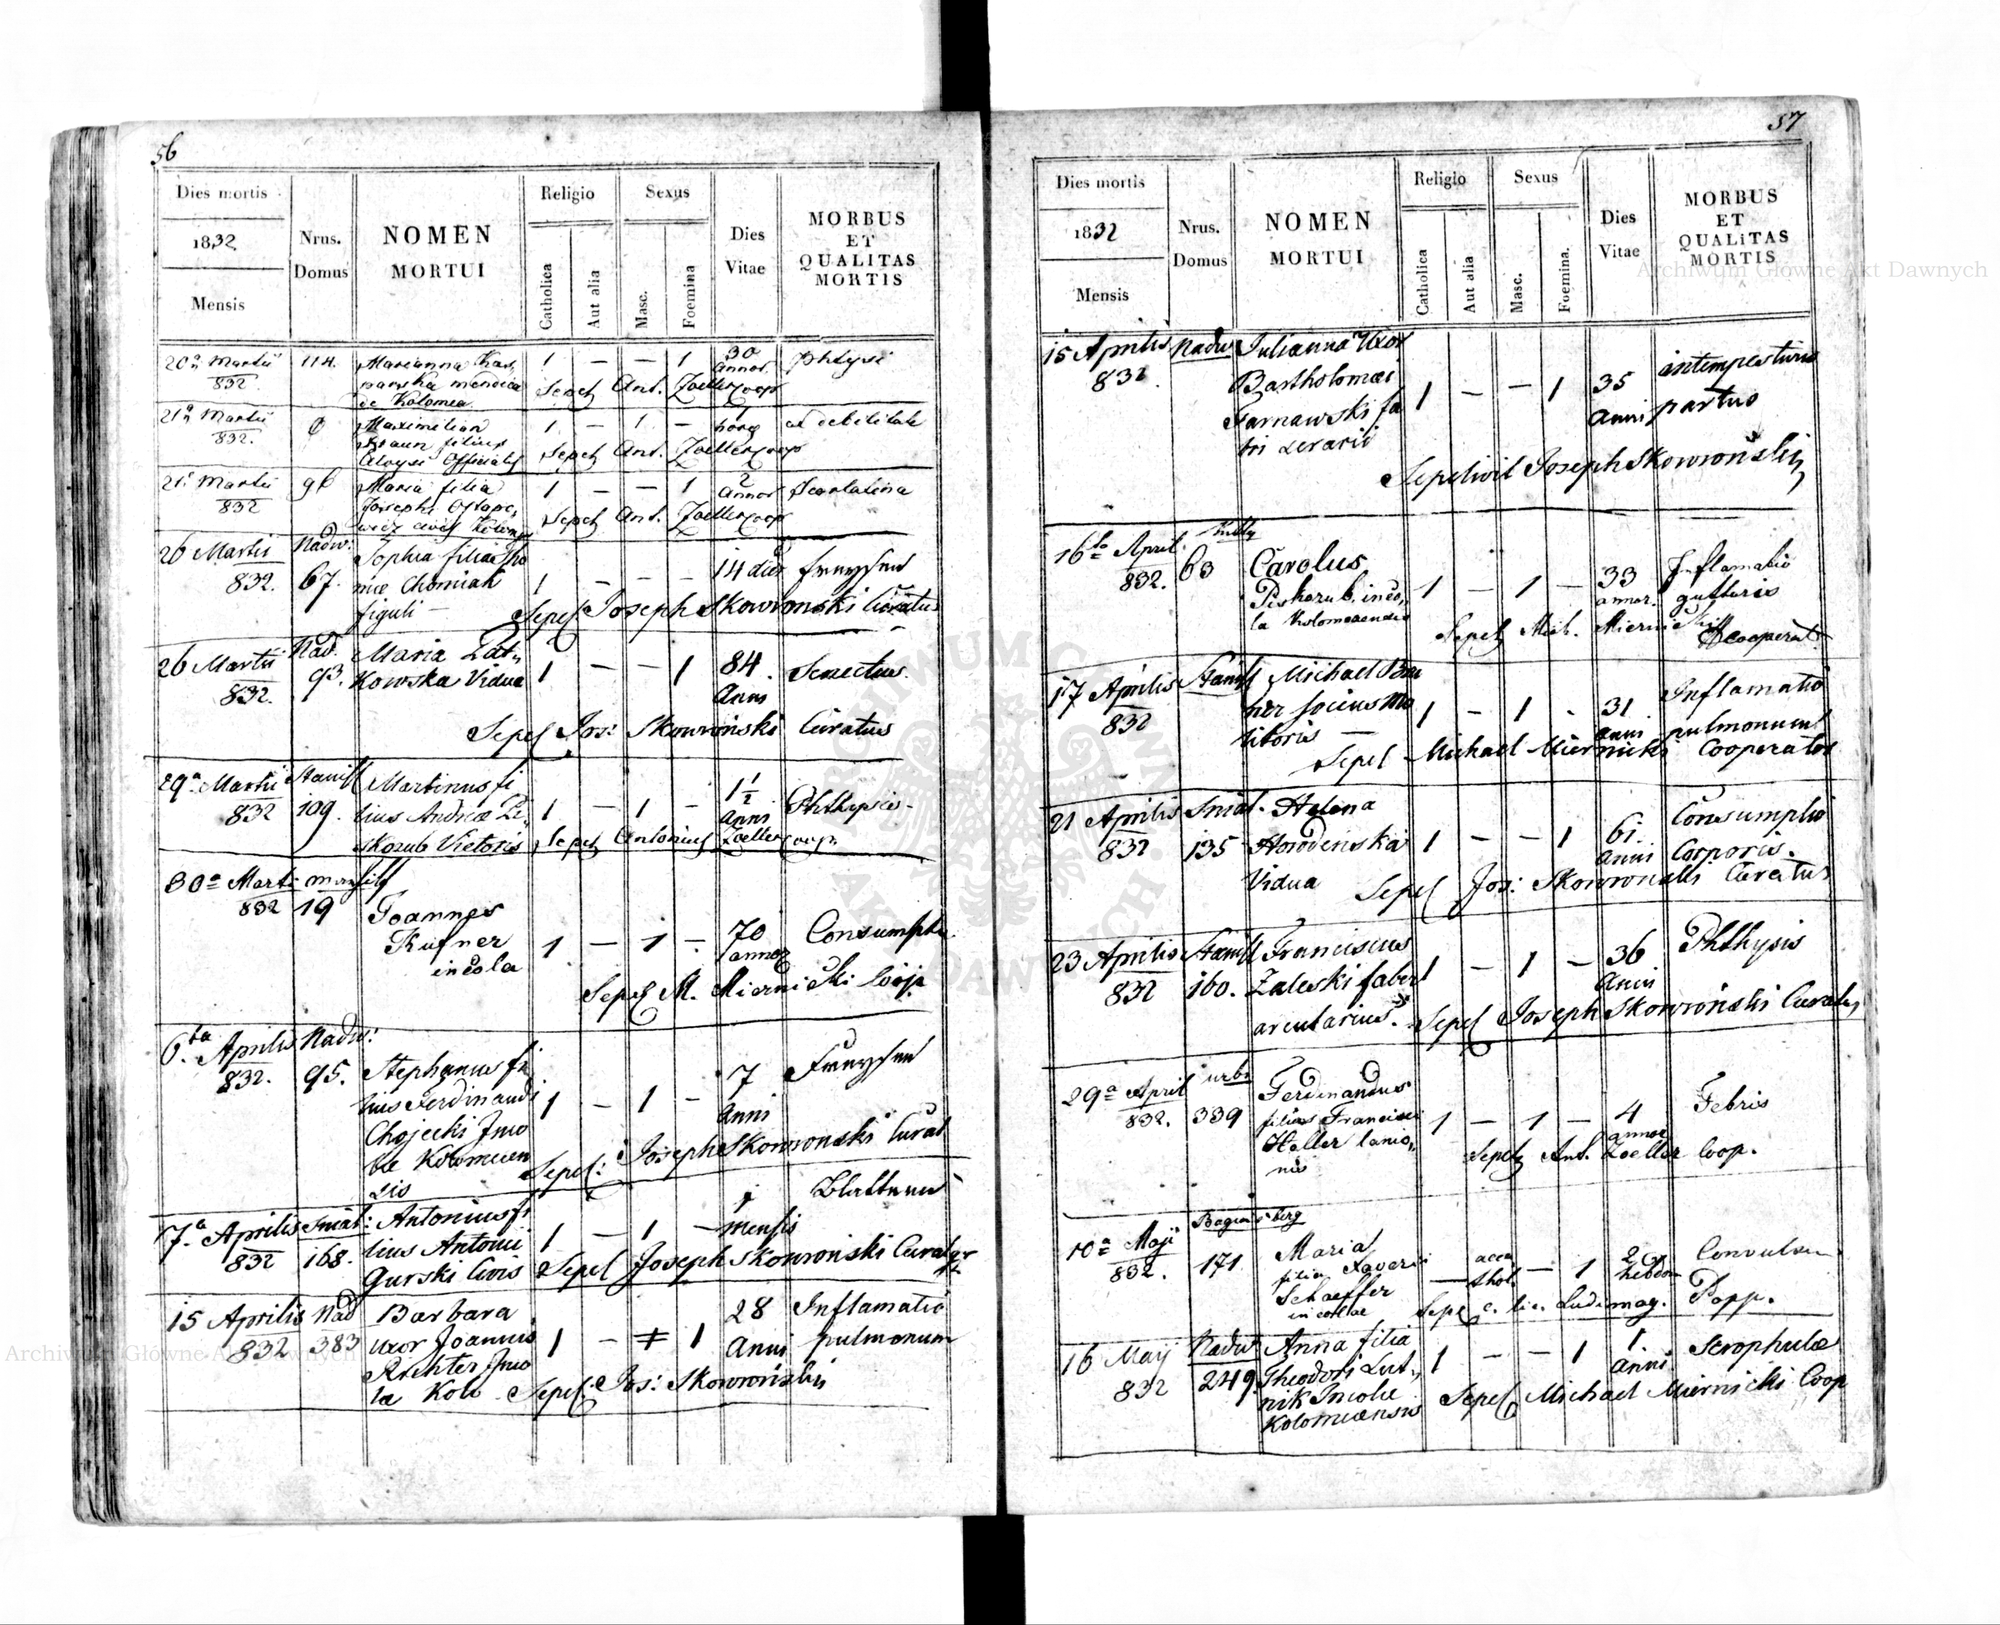 56
Dies mortis
1832
Mensis
Nrus.
Domus
NOMEN
MORTUI
Religio
Catholica
Aut alia
Sexus
Masc.
Foemina
Dies
Vitae
MORBUS
ET
QUALITAS
MORTIS
20a Martii 114. Marianna Kas, 1 — — 1 30 phtysi
832. annor.
de Kolomea Sepel Ant. Zoeller coop
21a Martii Maximilian 1 — 1 — ex debilitate
832. Braun filius horae
Aloysi Officialis Sepel Ant. Zoeller coop
21a Martii 96 Maria filia 1 — — 1 2 Scarlatina
832 Josephi annor
Sepel Ant. Zoeller coop
26 Martii Nadw: Sophia filia Tho 14 dies Fraysen
832. 67. mae Chomiak 1 — — —
figuli — Sepel Joseph Skowronski Curatus
26 Martii Nad. Maria Lat, 84. Senectus
832. 93. kowska Vidua 1 — — 1 Anni
Sepel Jos: Skowroński Curatus
29a Martii Stanisl Martinus fi 1½
832 109. lius Andreae Pi, 1 — 1 — Anni Phthysis
skozub Vietoris Sepel Antonius Zoeller Coop.
30a Martii
832 19 Joannes
Kufner 1 — 1 — 70
incola annor
Sepel M. Miernicki Coop
6ta Aprilis Nadw:
832. 95. Stephanus fi 7 Fraysen
lius Ferdinandi 1 — 1 — Anni
Chojecki Inco
lae Kolomeen Sepel: Joseph Skowronski Curat
sis
7a Aprilis Sniat: Antonius fi 1
832 168. lius Antonii 1 — 1 — mensis
Gurski Civis Sepel Joseph Skowroński Curatus
15 Aprilis Nad Barbara 28 Inflamatio
832 383 uxor Joannis 1 — 1 Anni pulmonum
Richter Inco
la Kolo Sepel: Jos: Skowroński
57
Dies mortis
1832
Mensis
Nrus.
Domus
NOMEN
MORTUI
Religio
Catholica
Aut alia
Sexus
Masc.
Foemina.
Dies
Vitae
MORBUS
ET
QUALITAS
MORTIS
15 Aprilis Nadw Julianna Uxor
832. Bartholomaei 1 — — 1 35
Tarnawski fa Anni partus
bri
Sepelivit Joseph Skowroński
16to April.
832. 63 Carolus 1 — 1 — 33 Inflamatio
Piskozub inco, annor. gutturis
la Kolomeaensis
Sepel Mich. Miernicki Cooperat
17 Aprilis Stanisl Michael Bau
832 ner socius Mo 1 — 1 - 31 Inflamatio
litoris — Anni pulmonum
Sepel Michael Miernicki Cooperator
21 Aprilis Sniat. Helena 61. Consumptio
832 135 Horodenska 1 — — 1 Anni Corporis.
Vidua Sepel Jos: Skowronski Curatus
23 Aprilis Stanisl Franciscus 36 Phthysis
832 160. Zaleski faber 1 — 1 — Anni
arcularius. Sepel Joseph Skowroński Curatus
29a April urbs Ferdinandus
832. 339 filius Francisci 1 — 1 — 4 Febris
Heller lanio, annor
nis Sepel Ant. Zoeller Coop.
10a Maji Baginsberg
832. 171 Maria
filia Xaverii acca — 1 2
Schaeffer thol. hebdom
incolae Sepel Ludimag. Popp.
16 Maij Nadw Anna filia 1. Scrophulae
832 249. Theodori Lut, 1 — — 1 anni
nik Incolae Sepel Michael Miernicki Coop
Kolomeaensis
Archiwum Główne Akt Dawnych
Archiwum Główne Akt Dawnych
ARCHIWUM GŁÓWNE AKT DAWNYCH